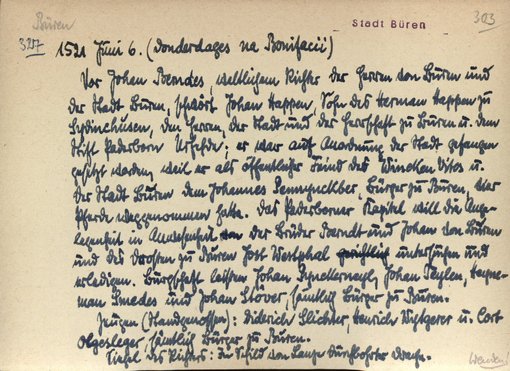 Büren
Stadt Büren
303
3217 1521 Juni 6. (donderdages na Bonifacii)
Vor Johan Berndes, weltlichem Richter der Herren von Büren und
der Stadt Büren, schwört Johan Happen, Sohn des Herman Happen zu
Sydinchusen, den Herren, der Stadt und der Herrschaft zu Büren u. dem
Stift Paderborn Urfehde; er war auf Anordnung der Stadt gefangen
gesetzt worden, weil er als öffentlicher Feind des Vitus u.
der Stadt Büren dem Johannes, Bürger zu Büren, vier
Pferde weggenommen hatte. Das Paderborner Kapitel will die Ange-
legenheit in Anwesenheit der Brüder Berndt und Johan von Büren
und des Drosten zu Büren Jost Westphal gerichtlich untersuchen und
erledigen. Bürgschaft leisten Johan, Johan,
man Smedes und Johan Stöver, sämtlich Bürger zu Büren.
Zeugen (Handgenossen): Diderich Slichter, Henrich u. Cort
Olygesleger, sämtlich Bürger zu Büren.
Siegel des Richters: Im Schild von Lanze durchbohrter Drache.